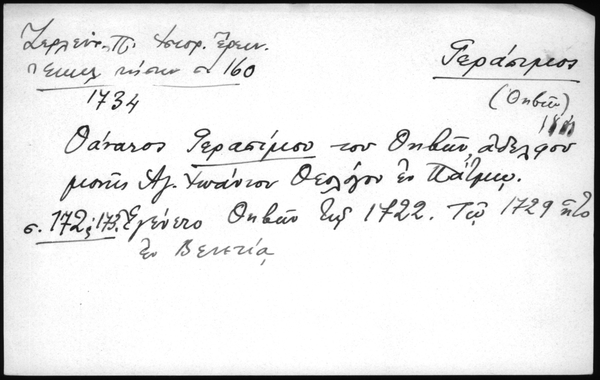 Ζερλένδ. Π. Ἱστορ. Ἔρευν.
ἐκκλ νήσων σ 160
Γεράσιμος
(Θηβῶν)
1734
Θάνατος Γερασίμου του Θηβῶν, ἀδελφου
μονῆς Ἁγ. Ἰωάννου Θεολόγου ἐν Πάτμῳ.
σ. 172, 173. Ἐγένετο Θηβῶν τῷ 1722. Τῷ 1729 ἦτο
ἐν Βενετίᾳ